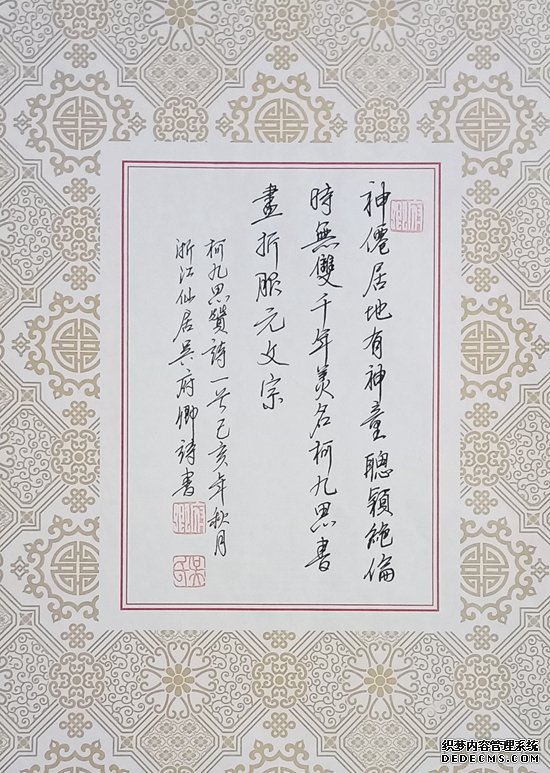 神僊居地有神童聰穎絶倫
時無雙千年美名柯九思書
畫折服元文宗
柯九思贊詩一首己亥年秋月
浙江仙居吴府卿詩書
织梦内容管理系统
DEDECMS.COM